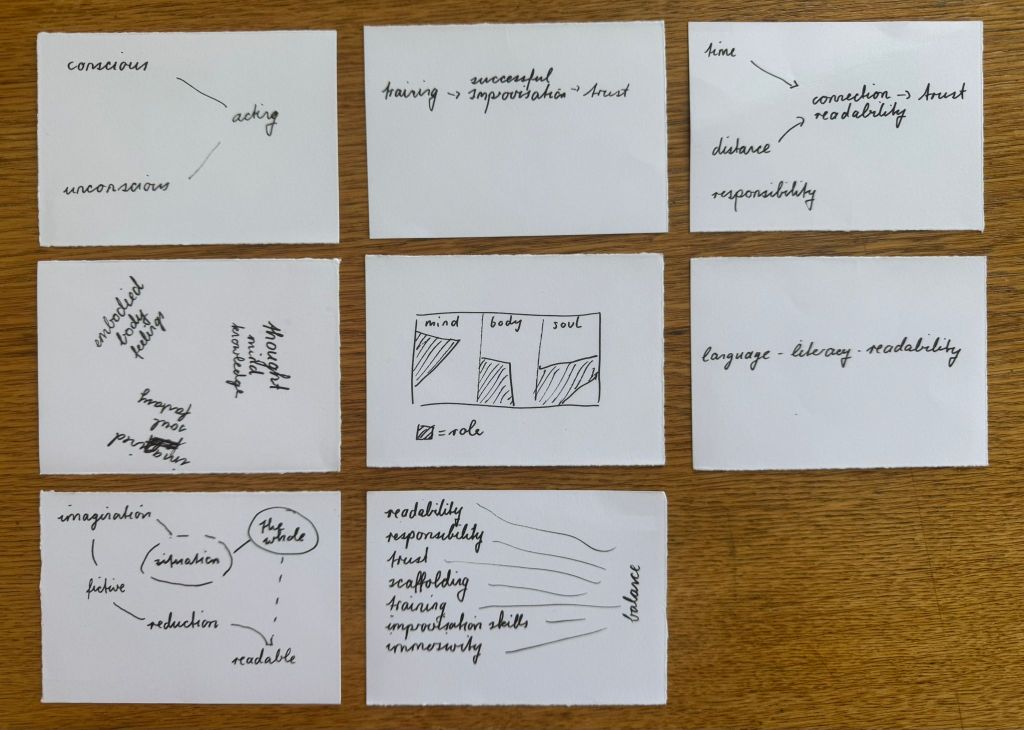 conscious
acting
unconscious
successful
training → improvisation → trust
time
connection → trust
readability
distance
responsibility
embodied
body
feelings
thought
mind
knowledge
fantasy
soul
mind body soul
= role
language - literacy - readability
imagination
the
whole
situation
fictive
reduction
readable
readability
responsibility
trust
scaffolding
training
improvisation skills
immersivity
balance